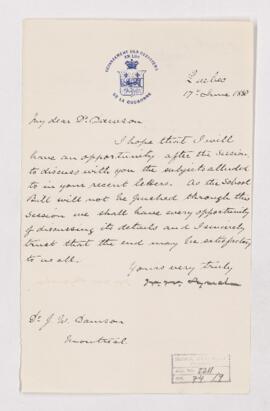 DÉPARTEMENT DES OFFICIERS
EN LOI
DE LA COURONNE
Quebec
17th June 1890
My dear Dr Dawson
I hope that I will
have an opportunity after the Session
to discuss with you the subjects alluded
to in your recent letters. As the School
Bill will not be pushed through this
Session we shall have every opportunity
of discussing its details and I sincerely
trust that the end may be satisfactory
to us all.
Yours very truly
W. W. Lynch
Dr J. W. Dawson
Montreal
2211
74 / 9